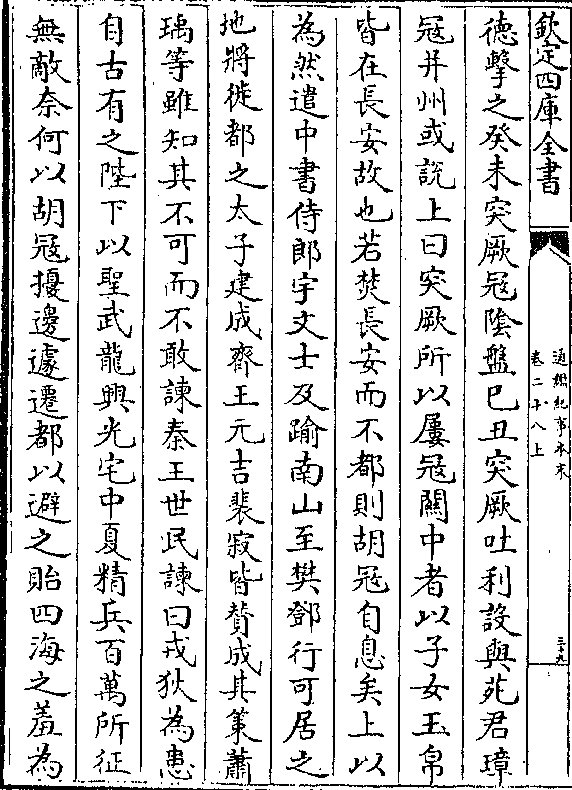 欽定四庫全書
通鑑紀事本末
卷二十八上
三十九
德擊之癸未突厥寇隂盤己丑突厥吐利設與苑君璋
寇并州或說上曰突厥所以屢寇關中者以子女玉帛
皆在長安故也若焚長安而不都則胡寇自息矣上以
為然遣中書侍郎宇文士及踰南山至樊鄧行可居之
地將徙都之太子建成齊王元吉裴寂皆賛成其策蕭
瑀等雖知其不可而不敢諫秦王世民諫曰戎狄為患
自古有之陛下以聖武龍興光宅中夏精兵百萬所征
無敵奈何以胡寇擾邊遽遷都以避之貽四海之羞為